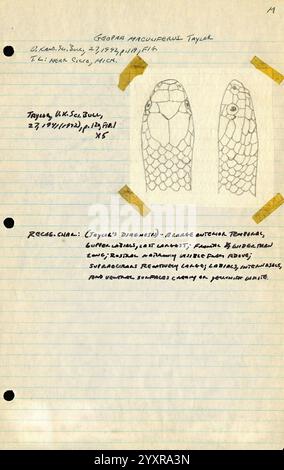 M
GEOPHIS MACULIFERUS TAYLOR
U. KANS. SCI. BULL., 27, 1942, p. 119, FIG.
T.L.: NEAR , MICH.
TAYLOR, U.K. SCI. BULL,
27, 1941(1942), p. 120, FIG. 1
X5
RECOG. CHAR.: (TAYLOR'S DIAGNOSIS) - A LARGE ANTERIOR TEMPORAL,
6 UPPER LABIALS, LAST LARGEST; FRONTAL WIDER THAN
LONG; ROSTRAL NARROWLY VISIBLE FROM ABOVE;
SUPRAOCULARS RELATIVELY LARGE; LABIALS, INTERNASALS,
AND VENTRAL SURFACES CREAMY OR YELLOWISH WHITE.
alamy
Image ID: 2YXRA3N
www.alamy.com